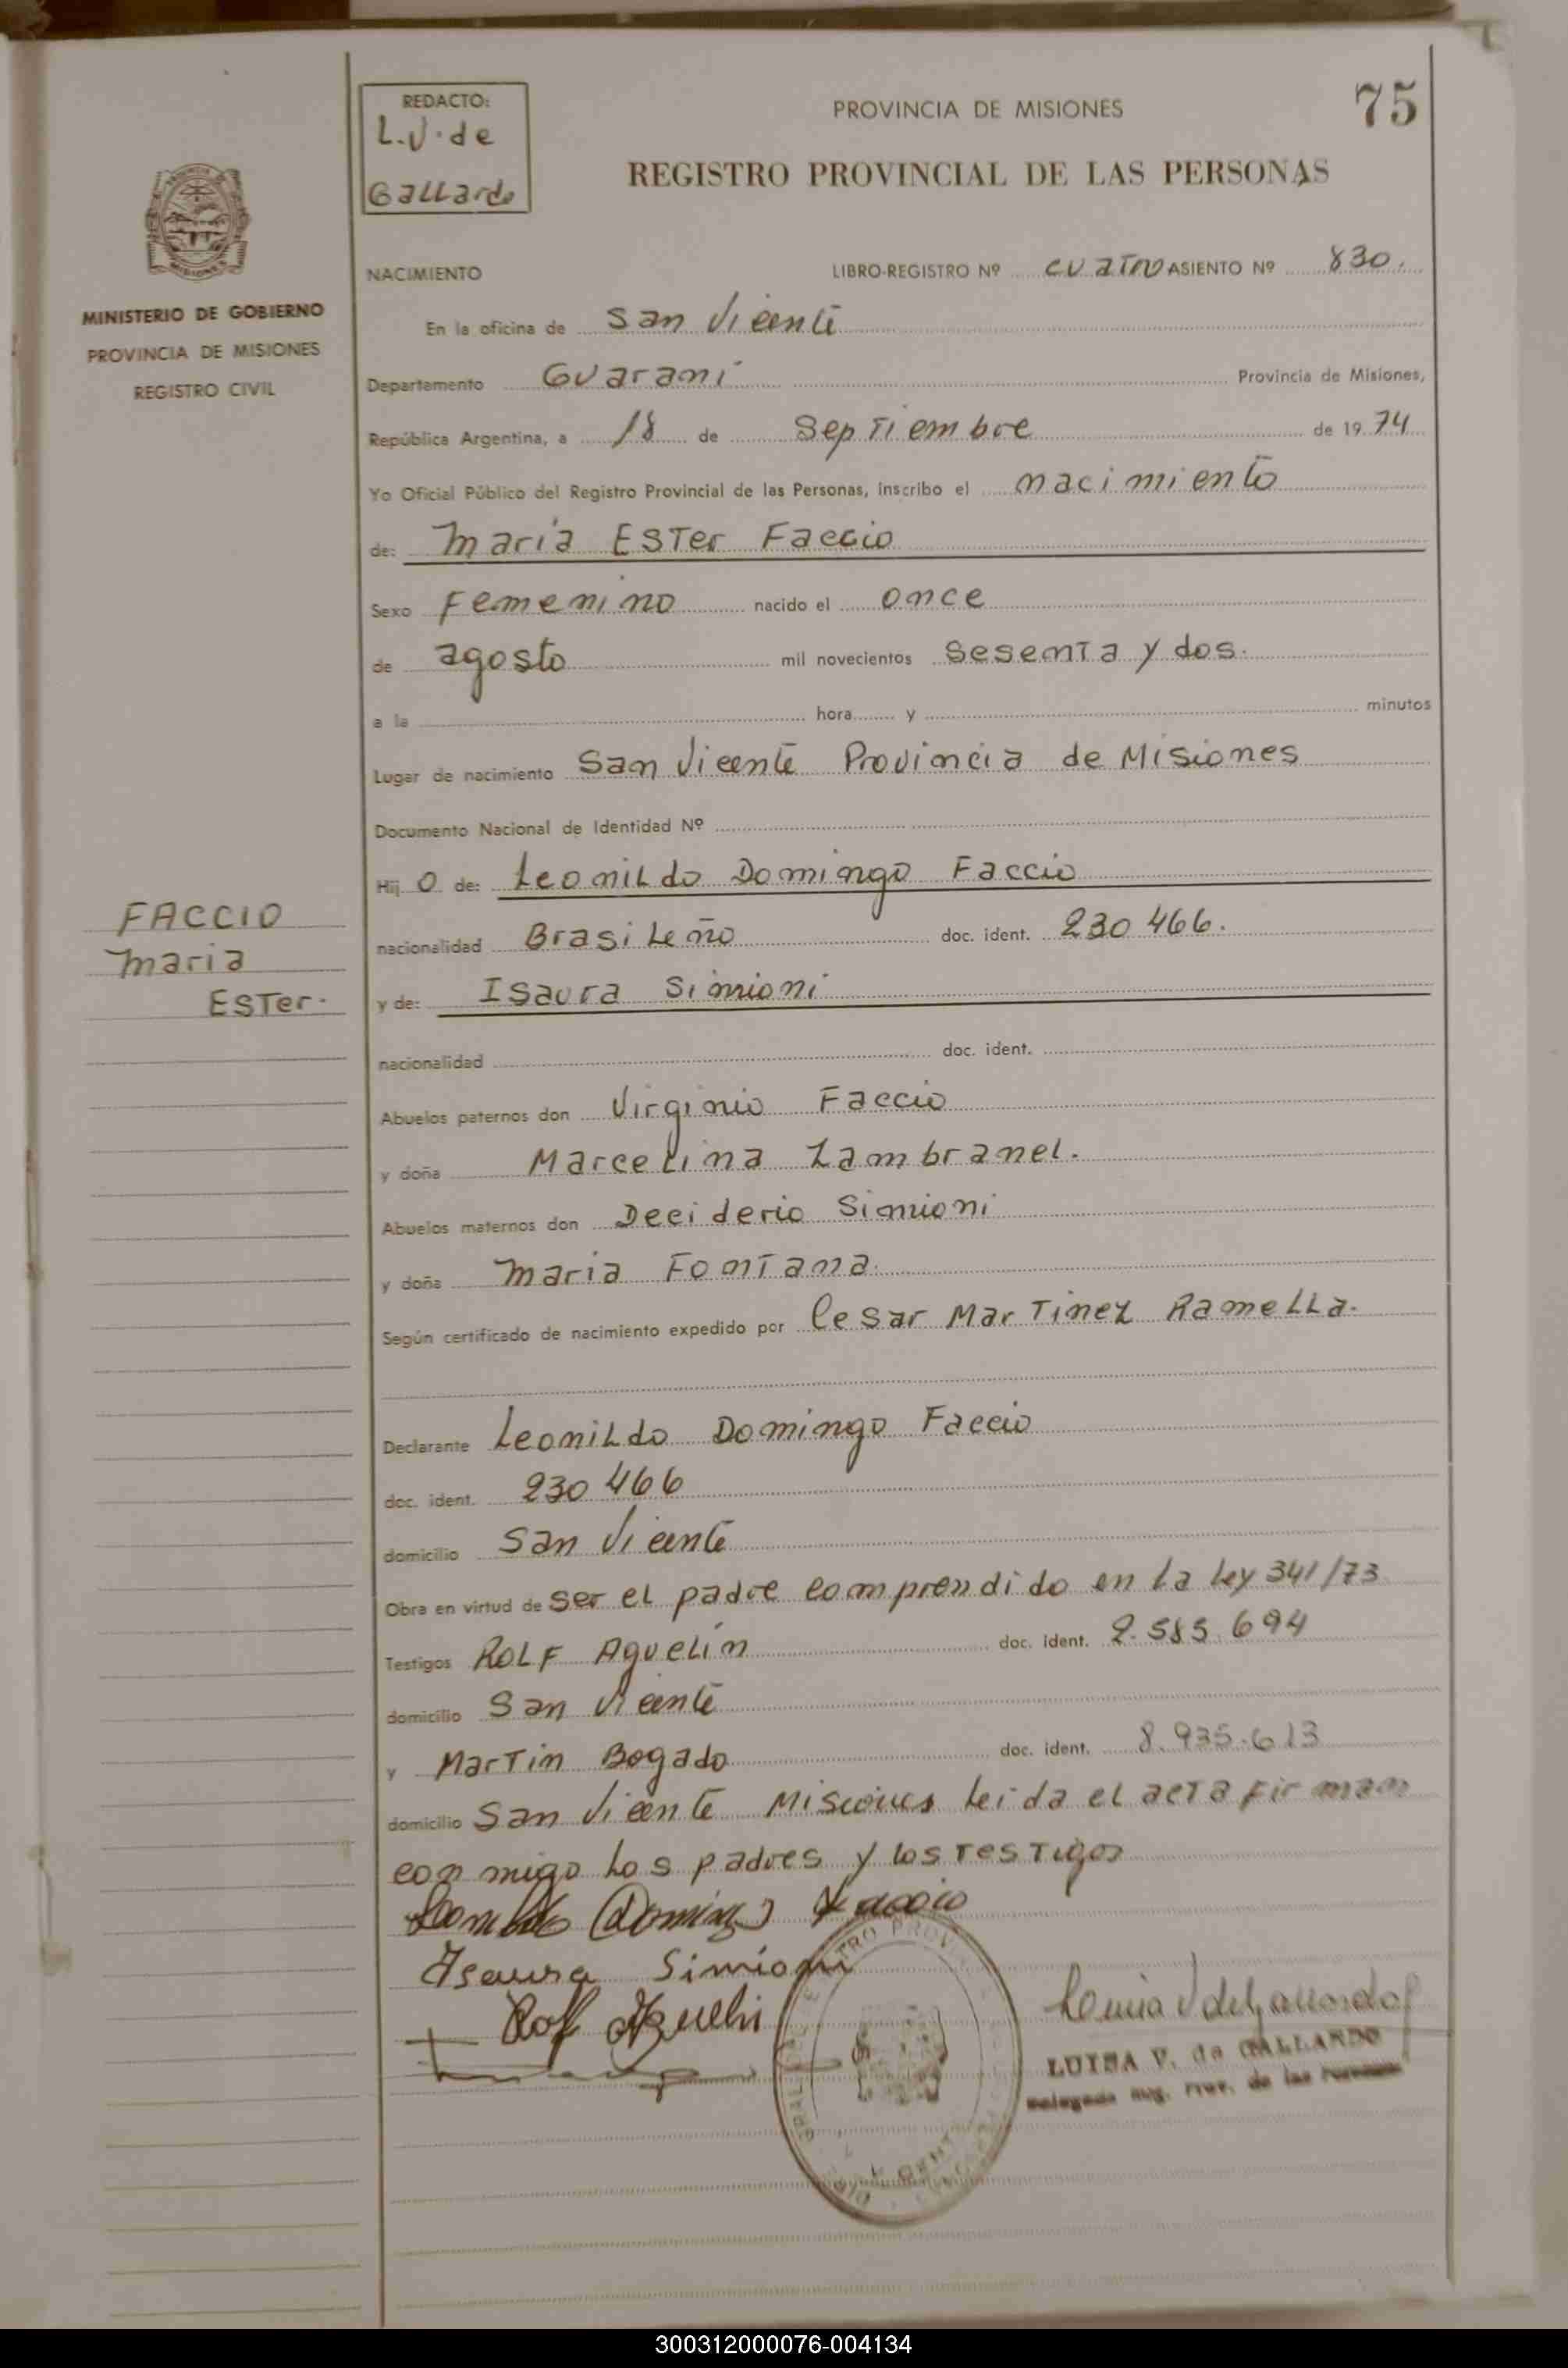 REDACTO:
L.V. de
Gallardo
PROVINCIA DE MISIONES
75
REGISTRO PROVINCIAL DE LAS PERSONAS
MISIONES
MINISTERIO DE GOBIERNO
PROVINCIA DE MISIONES
REGISTRO CIVIL
NACIMIENTO LIBRO-REGISTRO Nº cuatro ASIENTO Nº 830.
En la oficina de San Vicente
Departamento Guaraní Provincia de Misiones,
República Argentina, a 18 de Septiembre de 1974
Yo Oficial Público del Registro Provincial de las Personas, inscribo el nacimiento
de: María Ester Faccio
Sexo Femenino nacido el once
de agosto mil novecientos sesenta y dos.
a la hora y minutos
Lugar de nacimiento San Vicente Provincia de Misiones
Documento Nacional de Identidad Nº
Hijo de: Leonildo Domingo Faccio
nacionalidad Brasileño doc. ident. 230 466.
y de: Isaura Simioni
nacionalidad doc. ident.
FACCIO
Maria
Ester.
Abuelos paternos don Virginio Faccio
y doña Marcelina Zambranel.
Abuelos maternos don Deciderio Simioni
y doña Maria Fontana.
Según certificado de nacimiento expedido por Cesar Martinez Ramella.
Declarante Leonildo Domingo Faccio
doc. ident. 230 466
domicilio San Vicente
Obra en virtud de ser el padre comprendido en la ley 341/73
Testigos Rolf Aguelin doc. ident. 2.585.694
domicilio San Vicente
y Martin Bogado doc. ident. 8.935.613
domicilio San Vicente Misiones leida el acta firman
conmigo los padres y los testigos
Leonildo Domingo Faccio
Isaura Simioni
Rolf
LUISA V. de GALLARDO
Delegada Reg. Prov. de las Personas
300312000076-004134